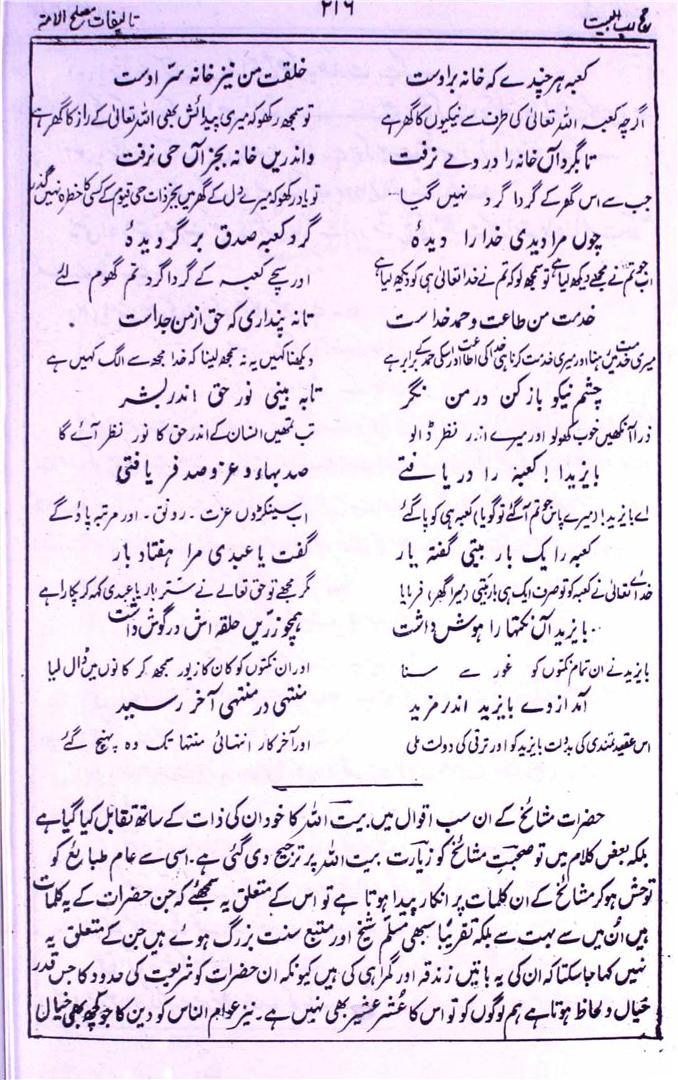 ۲۱۶
تالیفات مصلح الامۃ
کعبہ ہر چندے کہ خانہ بر اوست خلقت من نیز خانہ سر اوست
اگرچہ کعبہ اللہ تعالیٰ کی طرف سے نیکیوں کا گھر ہے تو سمجھ رکھو کہ میری پیدائش بھی اللہ تعالیٰ کے راز کا گھر ہے
تا بگرد آں خانہ را در وے نرفت واندریں خانہ بجز آں حی نرفت
جب سے اس گھر کے گردا گرد نہیں گیا تو یاد رکھو کہ میرے دل کے گھر میں بجز ذات حی قیوم کے کسی کا خطرہ نہیں گذرا
چوں مرا دیدی خدا را دیدۂ گرد کعبہ صدق بر گردیدۂ
اب جو تم نے مجھے دیکھ لیا ہے تو سمجھ لو کہ تم نے خدا تعالیٰ ہی کو دیکھ لیا ہے اور سچے کعبہ کے گردا گرد تم گھوم لئے
خدمت من طاعت و حمد خداست تا نہ پنداری کہ حق از من جداست
میری خدمت میں رہنا اور میری خدمت کرنا ہی خدا کی اطاعت اور اسکی حمد کے برابر ہے دیکھنا کہیں یہ نہ سمجھ لینا کہ خدا مجھ سے الگ کہیں ہے
چشم نیکو باز کن در من نگر تا بہ بینی نور حق اندر بشر
ذرا آنکھیں خوب کھولو اور میرے اندر نظر ڈالو تب تمہیں انسان کے اندر حق کا نور نظر آئے گا
بایزیدا! کعبہ را دریافتے صد بہاء و عز و صد فر یافتی
اے بایزید! (میرے پاس تم آگئے تو گویا) کعبہ ہی کو پا گئے اب سینکڑوں عزت۔ رونق۔ اور مرتبہ پاؤ گے
کعبہ را یک بار بیتی گفتہ یار گفت یا عبدی مرا ہفتاد بار
خدائے تعالیٰ نے کعبہ کو تو صرف ایک ہی بار بیتی (میرا گھر) فرمایا مگر مجھے تو حق تعالے نے ستر بار یا عبدی کہہ کر پکارا ہے
بایزید آں نکتہا را ہوش داشت ہمچو زریں حلقہ اش در گوش داشت
بایزید نے ان تمام نکتوں کو غور سے سنا اور ان نکتوں کو کان کا زیور سمجھ کر کانوں میں ڈال لیا
آمد از وے بایزید اندر مزید منتہی در منتہی آخر رسید
اس عقیدتمندی کی بدولت بایزید کو اور ترقی کی دولت ملی اور آخر کار انتہائی منتہا تک وہ پہنچ گئے
حضرات مشائخ کے ان سب اقوال میں بیت اللہ کا خود ان کی ذات کے ساتھ تقابل کیا گیا ہے
بلکہ بعض کلام میں تو صحبت مشائخ کو زیارت بیت اللہ پر ترجیح دی گئی ہے۔ اسی سے عام طبائع کو
توحش ہو کر مشائخ کے ان کلمات پر انکار پیدا ہوتا ہے تو اس کے متعلق یہ سمجھئے کہ جن حضرات کے یہ کلمات
ہیں اُن میں سے بہت سے بلکہ تقریباً سبھی مسلم شیخ اور متبع سنت بزرگ ہوئے ہیں جن کے متعلق یہ
نہیں کہا جا سکتا کہ ان کی یہ باتیں زندقہ اور گمراہی کی ہیں کیونکہ ان حضرات کو شریعت کی حدود کا جس قدر
خیال و لحاظ ہوتا ہے ہم لوگوں کو تو اس کا عُشر عشیر بھی نہیں ہے۔ نیز عوام الناس کو دین کا جو کچھ بھی خیال